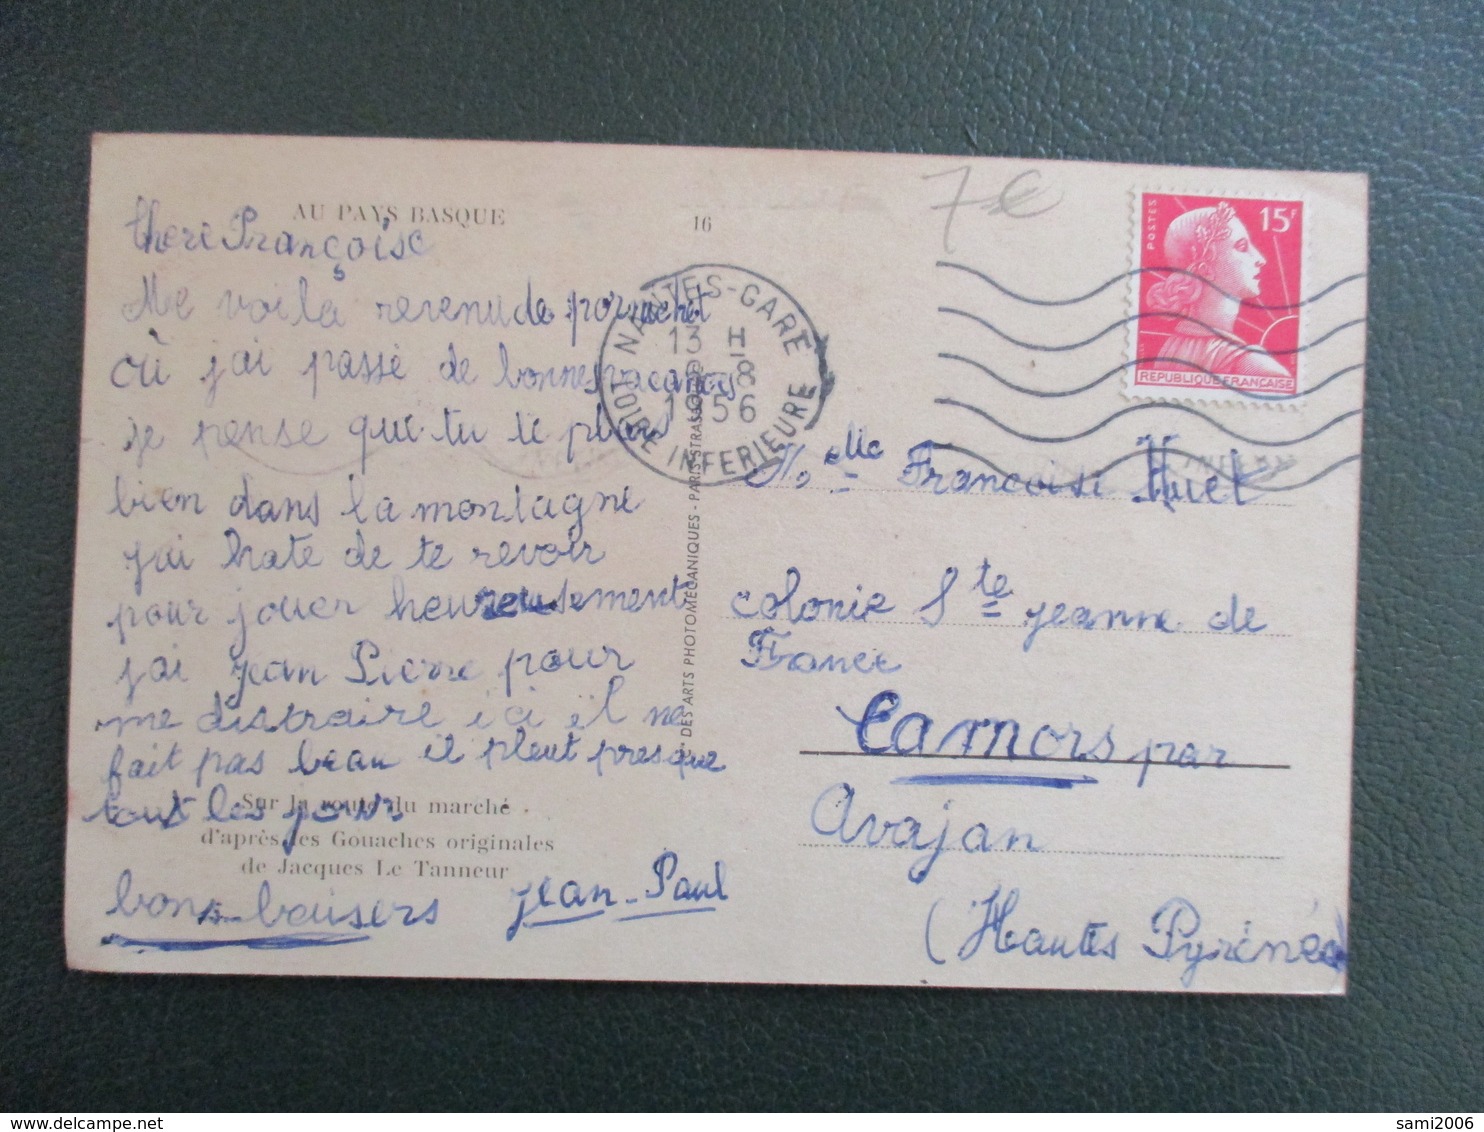 AU PAYS BASQUE
16
7€
chere Françoise
Me voilà revenu de pornichet
où j'ai passé de bonnes vacances
je pense que tu te plais
bien dans la montagne
j'ai hate de te revoir
pour jouer heureusement
j'ai jean Pierre pour
me distraire ici il ne
fait pas beau il pleut presque
tout les jours
Sur la route du marché
d'après les Gouaches originales
de Jacques Le Tanneur
bons baisers jean-Paul
DES ARTS PHOTOMECANIQUES - PARIS STRASBOURG
NANTES-GARE
13 H
-8
1956
LOIRE INFERIEURE
POSTES
15F
REPUBLIQUE FRANÇAISE
Melle Francoise Huet
colonie Ste jeanne de
France
Camors par
Avajan
(Hautes Pyrénées
sami2006